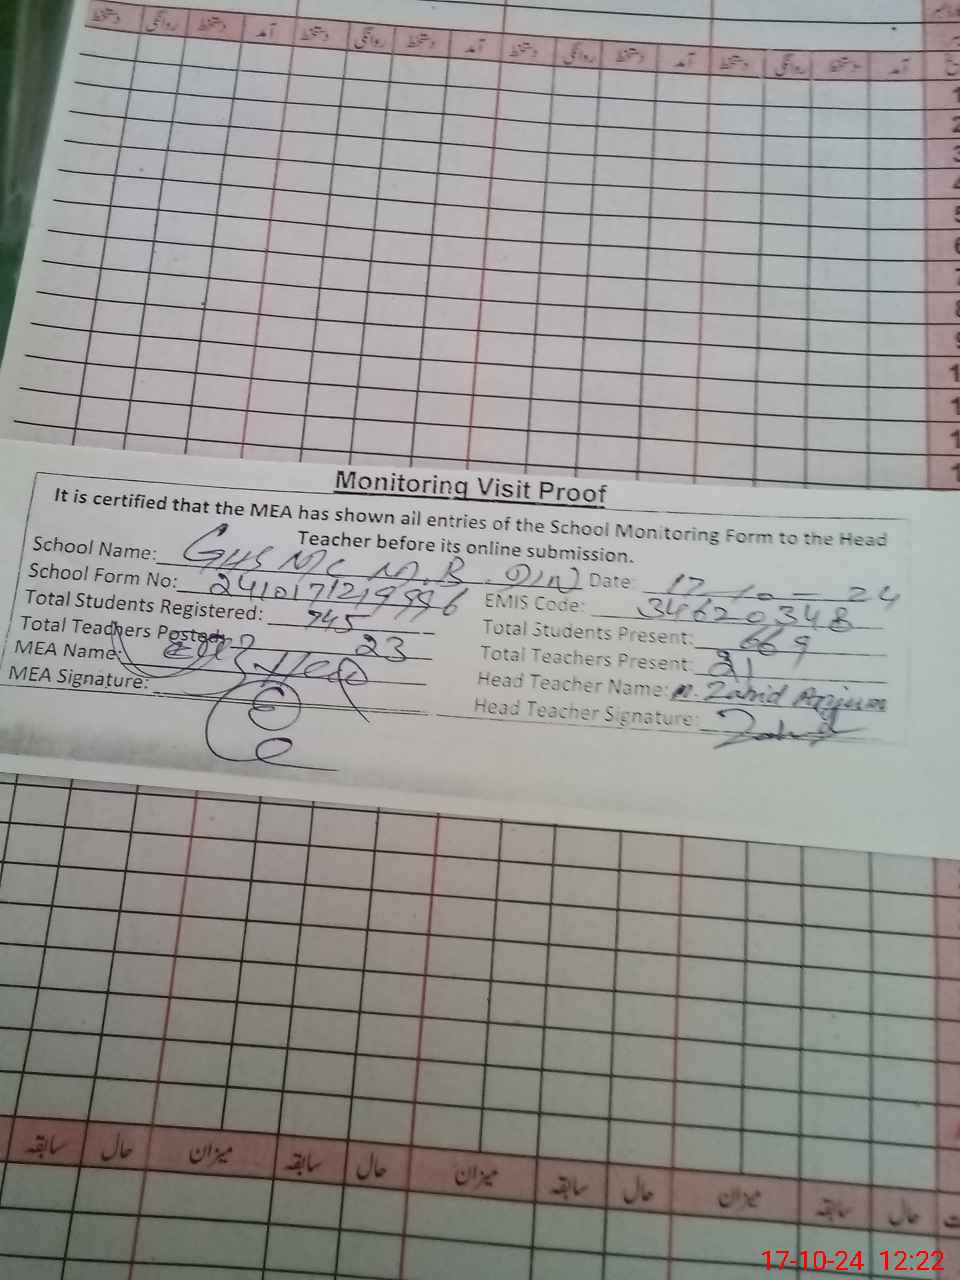 دستخط روانگی دستخط آمد دستخط روانگی دستخط آمد دستخط روانگی دستخط آمد دستخط روانگی دستخط آمد
Monitoring Visit Proof
It is certified that the MEA has shown all entries of the School Monitoring Form to the Head
Teacher before its online submission.
School Name: GHS MC M.B.DIN Date: 17-10-24
School Form No: EMIS Code: 34620348
Total Students Registered: 745 Total Students Present: 669
Total Teachers Posted: 23 Total Teachers Present: 21
MEA Name: Head Teacher Name: M. Zahid Anjum
MEA Signature: Head Teacher Signature: Zahid
سابقہ حال میزان سابقہ حال میزان سابقہ حال میزان سابقہ حال
17-10-24 12:22